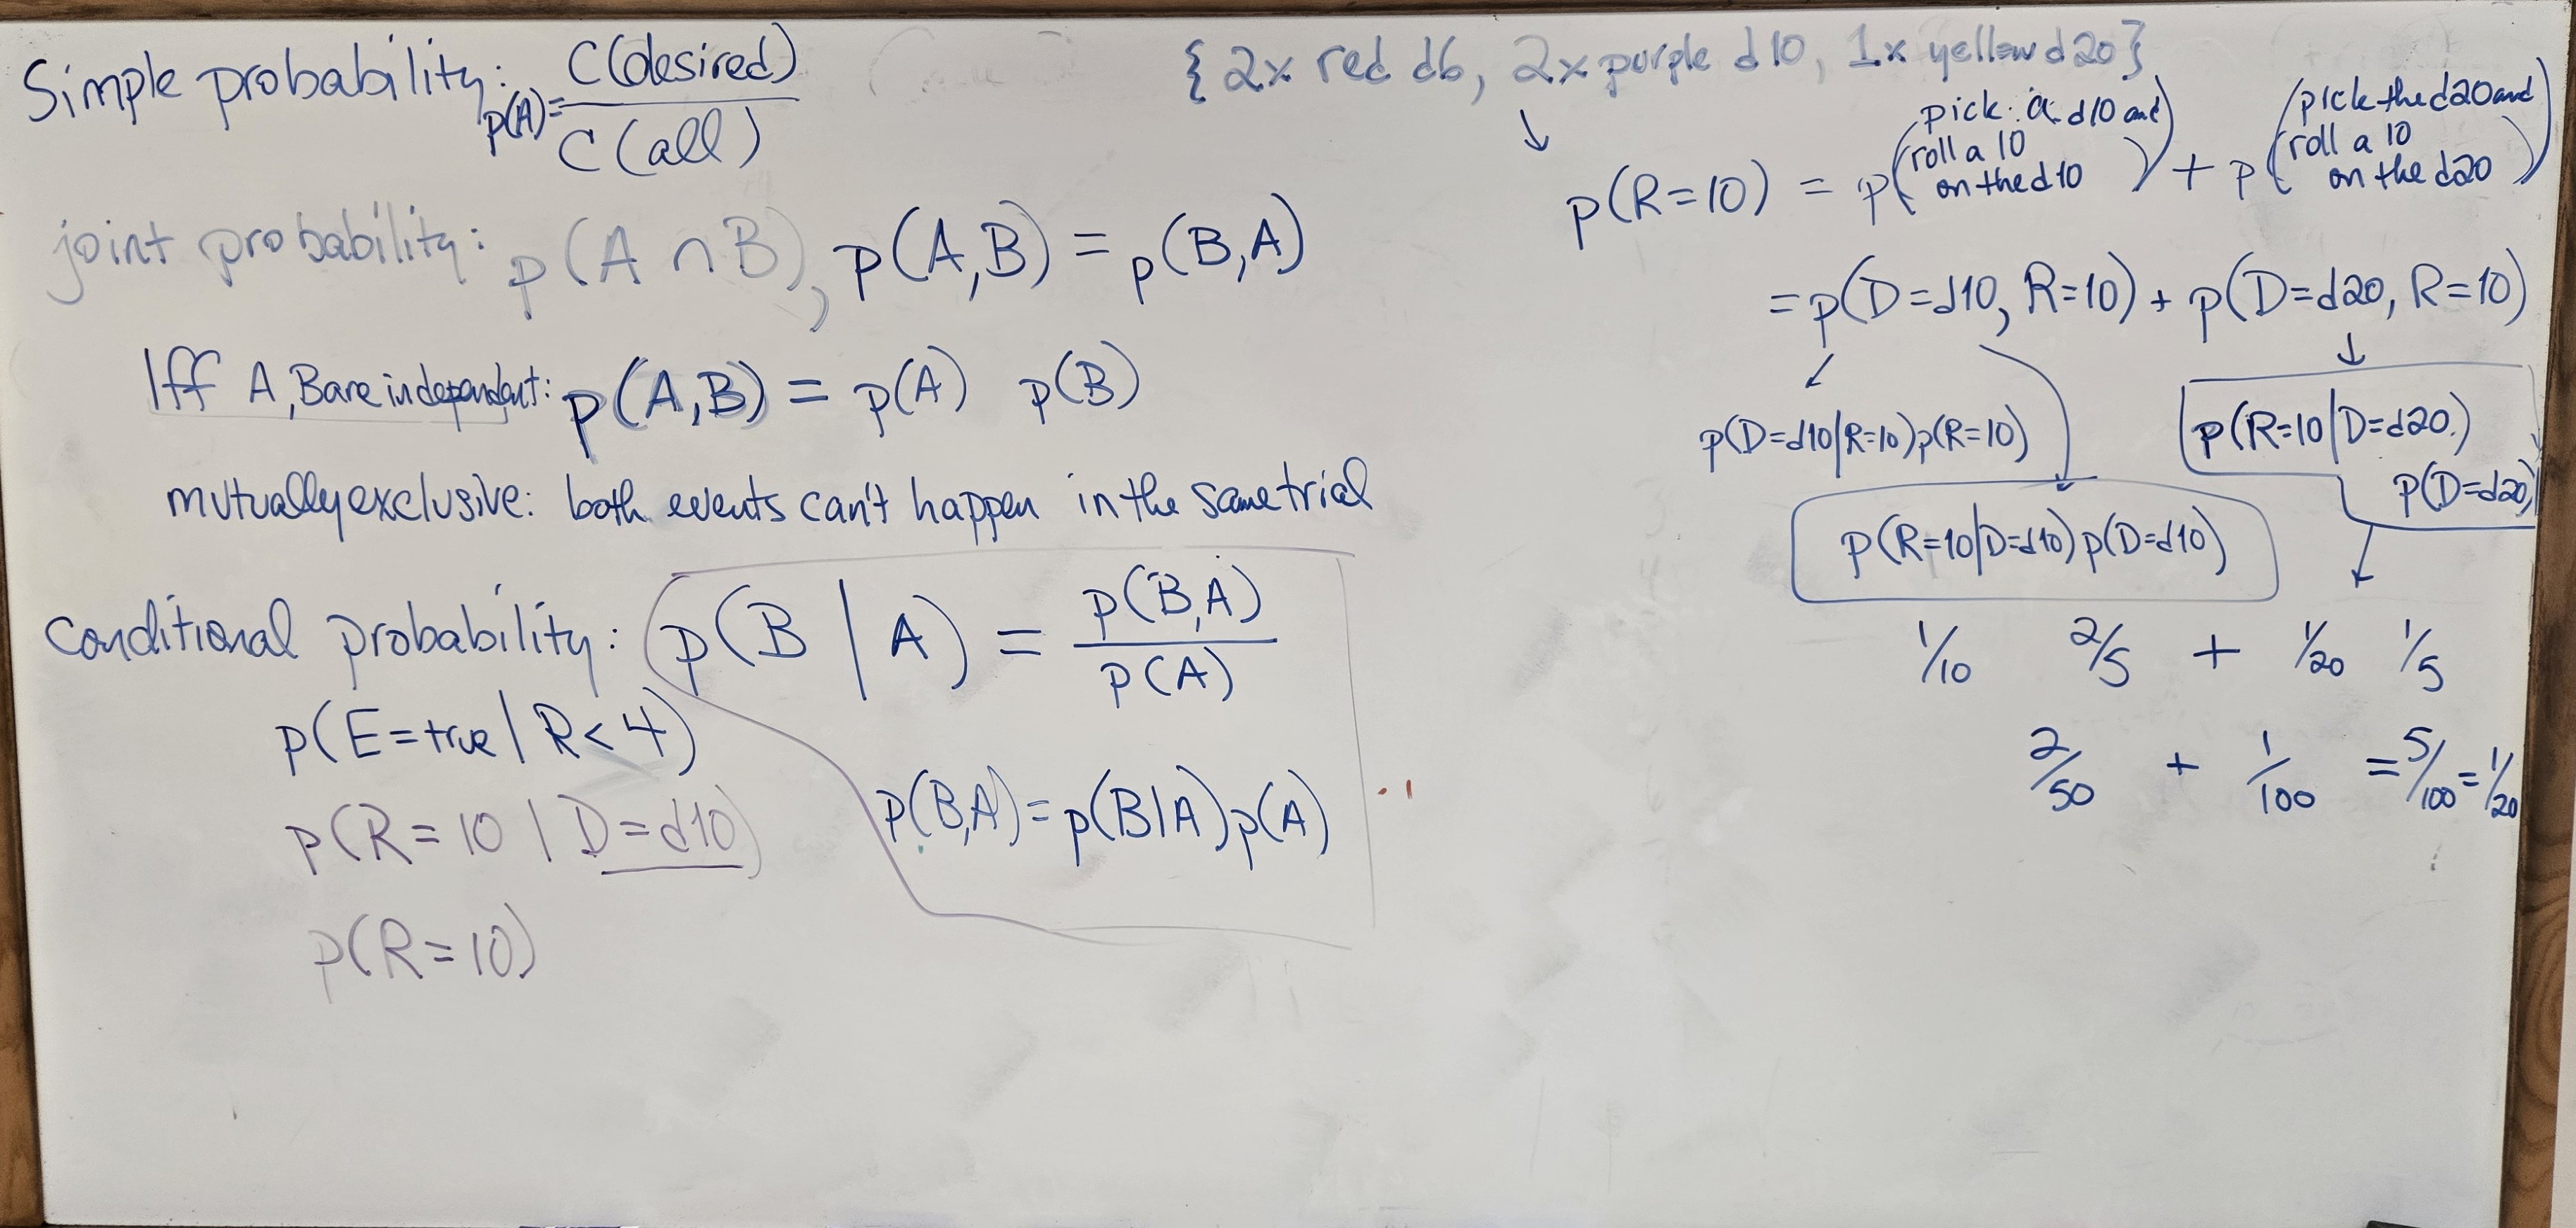 Simple probability: p(A) = C(desired) / C(all)
joint probability: p(A ∩ B), p(A,B) = p(B,A)
Iff A, B are independent: p(A,B) = p(A) p(B)
mutually exclusive: both events can't happen in the same trial
Conditional probability: p(B | A) = p(B,A) / p(A)
p(E=true | R<4)
p(R=10 | D=d10)
p(R=10)
p(B,A) = p(B|A) p(A)
{2x red d6, 2x purple d10, 1x yellow d20}
↓
p(R=10) = p(pick a d10 and roll a 10 on the d10) + p(pick the d20 and roll a 10 on the d20)
= p(D=d10, R=10) + p(D=d20, R=10)
p(D=d10|R=10) p(R=10)
p(R=10|D=d20)
p(D=d20)
p(R=10|D=d10) p(D=d10)
1/10 2/5 + 1/20 1/5
2/50 + 1/100 = 5/100 = 1/20